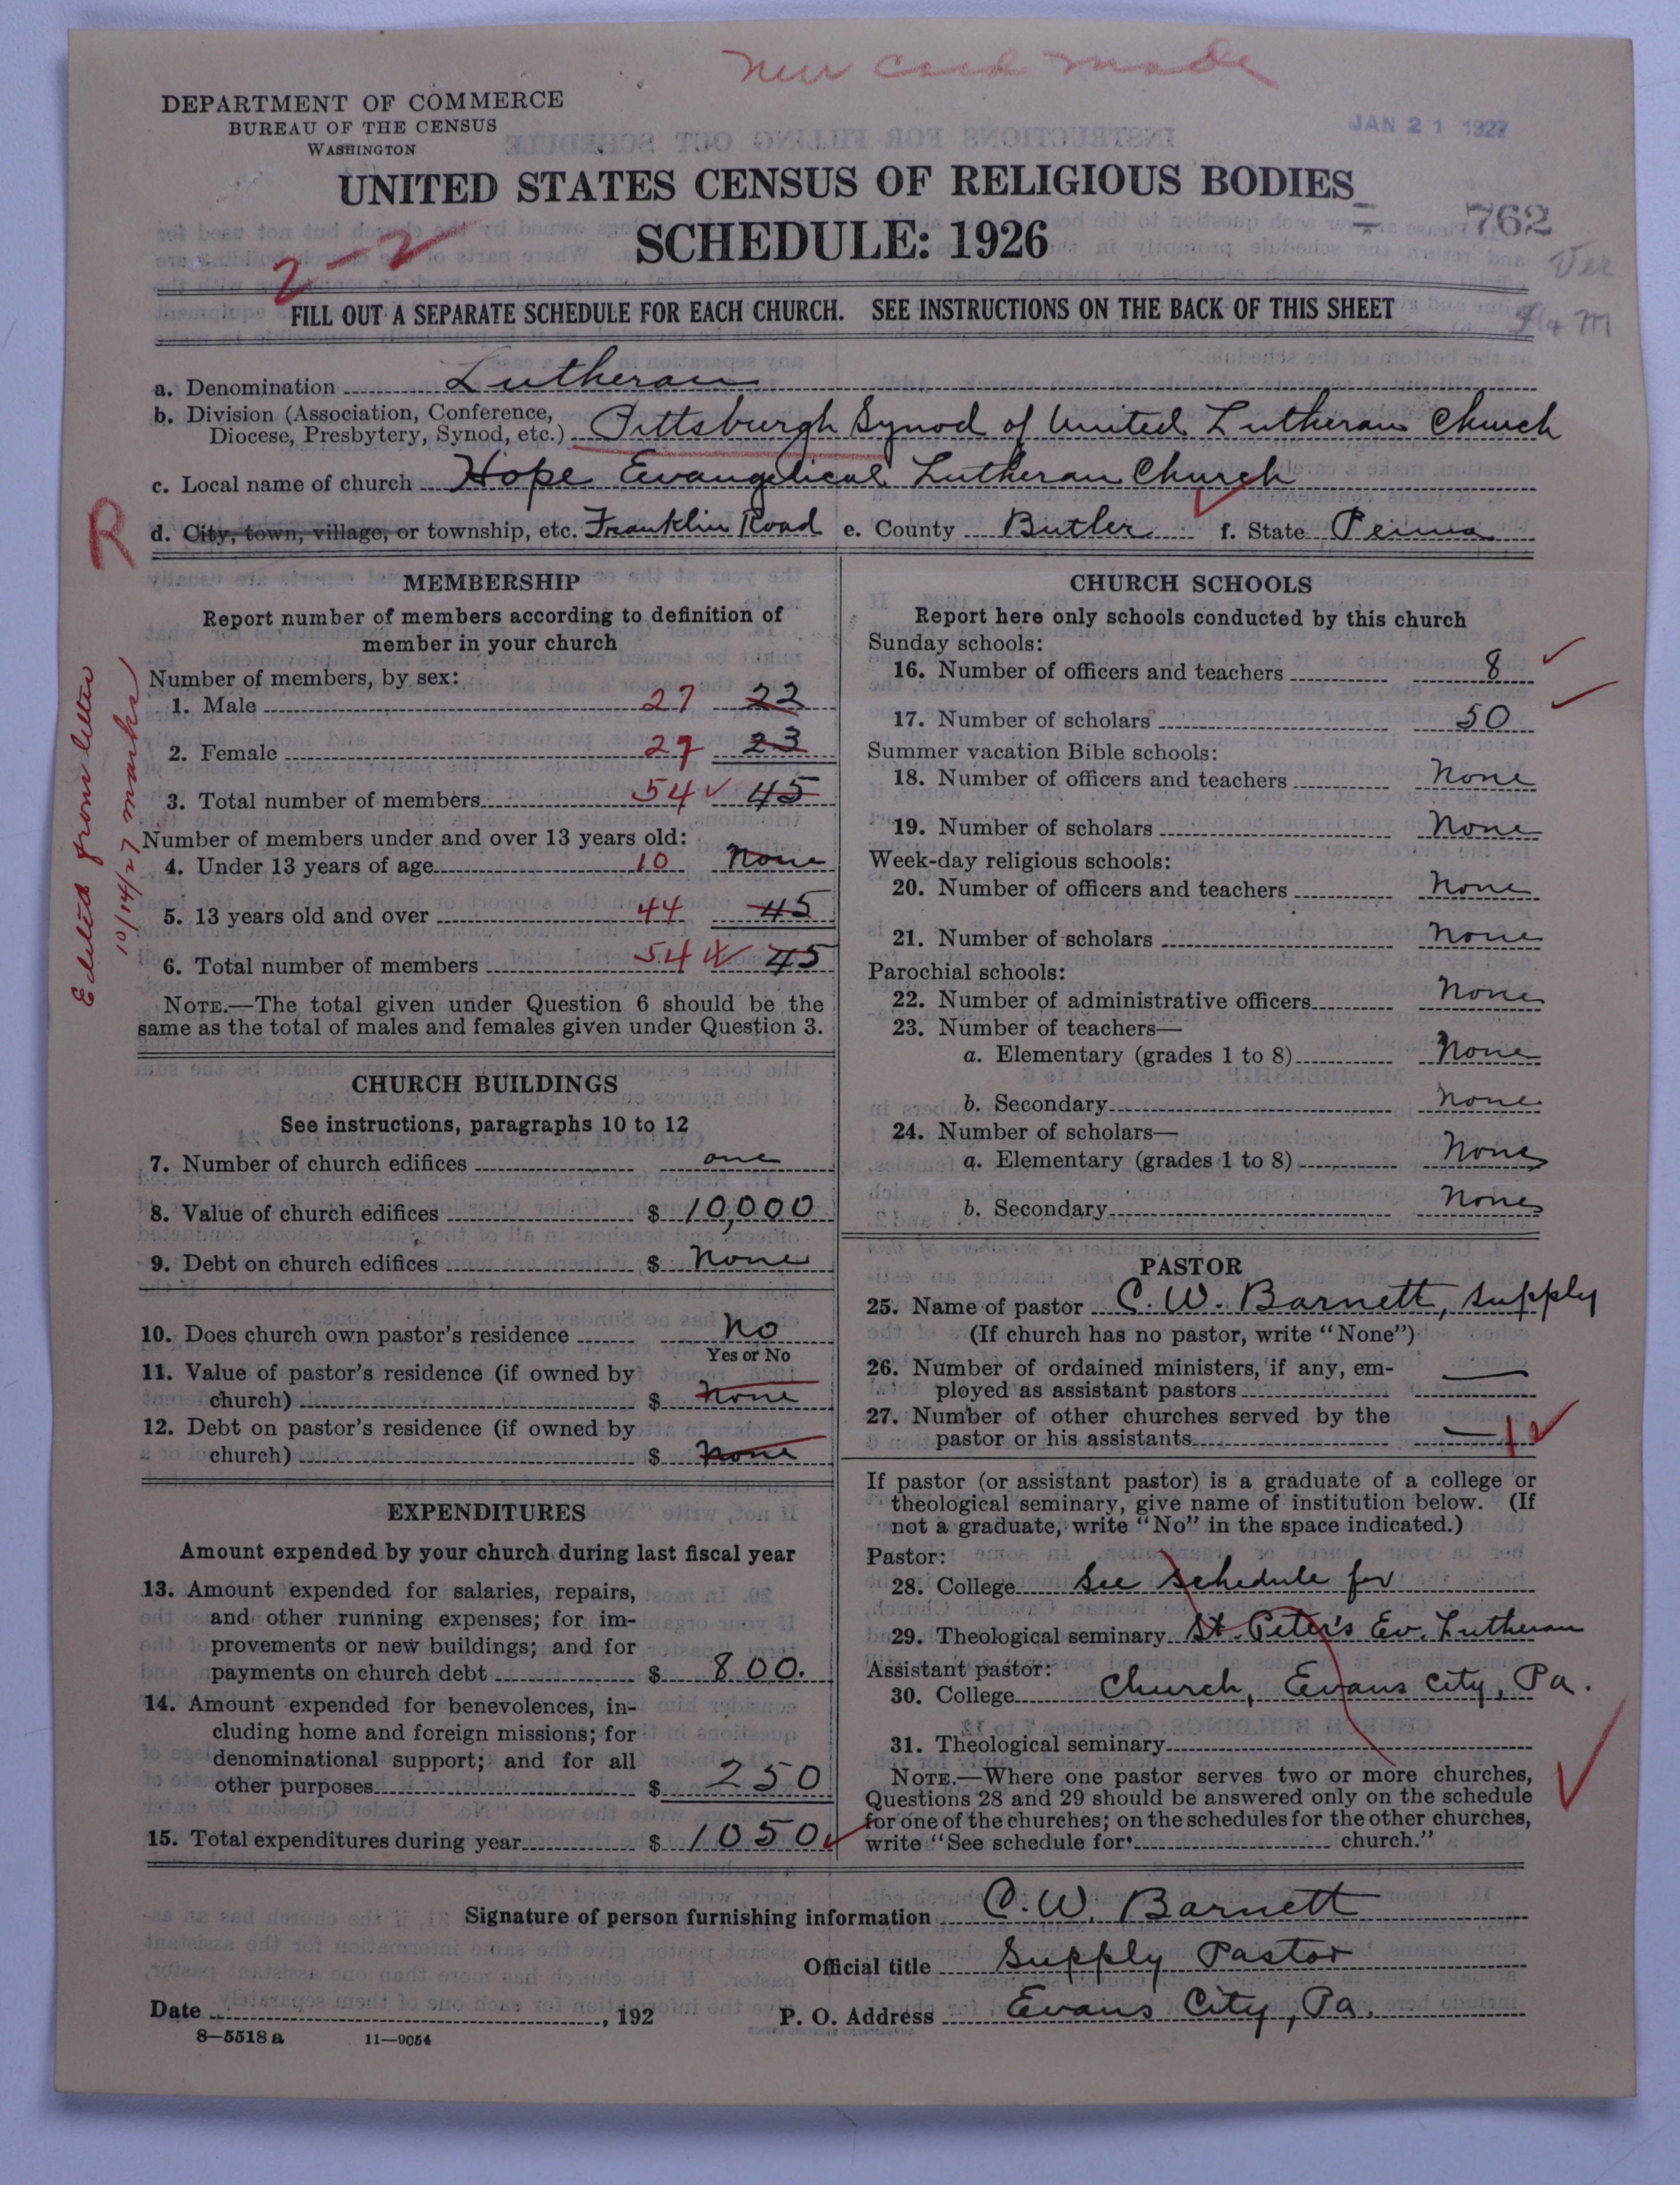 New card made
DEPARTMENT OF COMMERCE
BUREAU OF THE CENSUS
WASHINGTON
JAN 21 1927
UNITED STATES CENSUS OF RELIGIOUS BODIES
SCHEDULE: 1926
762
Ver
2-2
FILL OUT A SEPARATE SCHEDULE FOR EACH CHURCH. SEE INSTRUCTIONS ON THE BACK OF THIS SHEET
a. Denomination Lutheran
b. Division (Association, Conference,
Diocese, Presbytery, Synod, etc.) Pittsburgh Synod of United Lutheran Church
c. Local name of church Hope Evangelical Lutheran Church
R
d. City, town, village, or township, etc. Franklin Road e. County Butler f. State Penna
Edited from letter
10/14/27 marks
MEMBERSHIP
Report number of members according to definition of
member in your church
Number of members, by sex:
1. Male 27 22
2. Female 27 23
3. Total number of members 54 45
Number of members under and over 13 years old:
4. Under 13 years of age 10 None
5. 13 years old and over 44 45
6. Total number of members 54 45
NOTE.—The total given under Question 6 should be the
same as the total of males and females given under Question 3.
CHURCH BUILDINGS
See instructions, paragraphs 10 to 12
7. Number of church edifices one
8. Value of church edifices $ 10,000
9. Debt on church edifices $ None
10. Does church own pastor's residence No
Yes or No
11. Value of pastor's residence (if owned by
church) $ None
12. Debt on pastor's residence (if owned by
church) $ None
EXPENDITURES
Amount expended by your church during last fiscal year
13. Amount expended for salaries, repairs,
and other running expenses; for im-
provements or new buildings; and for
payments on church debt $ 800.
14. Amount expended for benevolences, in-
cluding home and foreign missions; for
denominational support; and for all
other purposes $ 250
15. Total expenditures during year $ 1050
CHURCH SCHOOLS
Report here only schools conducted by this church
Sunday schools:
16. Number of officers and teachers 8
17. Number of scholars 50
Summer vacation Bible schools:
18. Number of officers and teachers None
19. Number of scholars None
Week-day religious schools:
20. Number of officers and teachers None
21. Number of scholars None
Parochial schools:
22. Number of administrative officers None
23. Number of teachers—
a. Elementary (grades 1 to 8) None
b. Secondary None
24. Number of scholars—
a. Elementary (grades 1 to 8) None
b. Secondary None
PASTOR
25. Name of pastor C. W. Barnett, Supply
(If church has no pastor, write "None")
26. Number of ordained ministers, if any, em-
ployed as assistant pastors —
27. Number of other churches served by the
pastor or his assistants — 1
If pastor (or assistant pastor) is a graduate of a college or
theological seminary, give name of institution below. (If
not a graduate, write "No" in the space indicated.)
Pastor:
28. College See Schedule for
29. Theological seminary St. Peter's Ev. Lutheran
Assistant pastor:
30. College Church, Evans City, Pa.
31. Theological seminary
NOTE.—Where one pastor serves two or more churches,
Questions 28 and 29 should be answered only on the schedule
for one of the churches; on the schedules for the other churches,
write "See schedule for church."
Signature of person furnishing information C. W. Barnett
Official title Supply Pastor
Date , 192
P. O. Address Evans City, Pa.
8—5518 a 11—9054